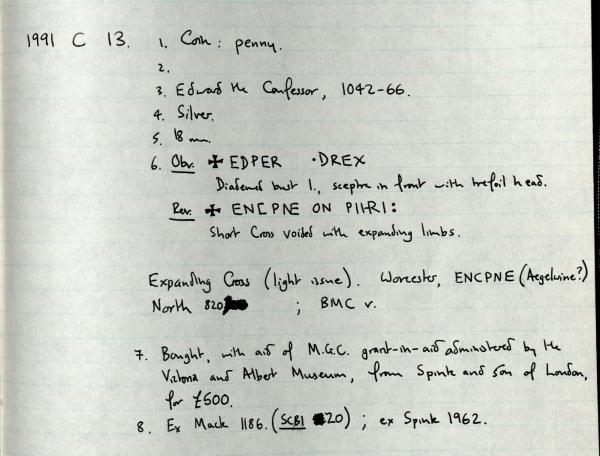 1991 C 13. 1. Coin: penny.
2.
3. Edward the Confessor, 1042-66.
4. Silver.
5. 18 mm.
6. Obv. ✠ EDPER ·DREX
Diademed bust l., sceptre in front with trefoil head.
Rev. ✠ ENCPNE ON PIHRI:
Short Cross voided with expanding limbs.
Expanding Cross (light issue). Worcester, ENCPNE (Aegelwine?)
North 820 ; BMC v.
7. Bought, with aid of M.G.C. grant-in-aid administered by the
Victoria and Albert Museum, from Spink and Son of London,
for £500.
8. Ex Mack 1186. (SCBI 20) ; ex Spink 1962.